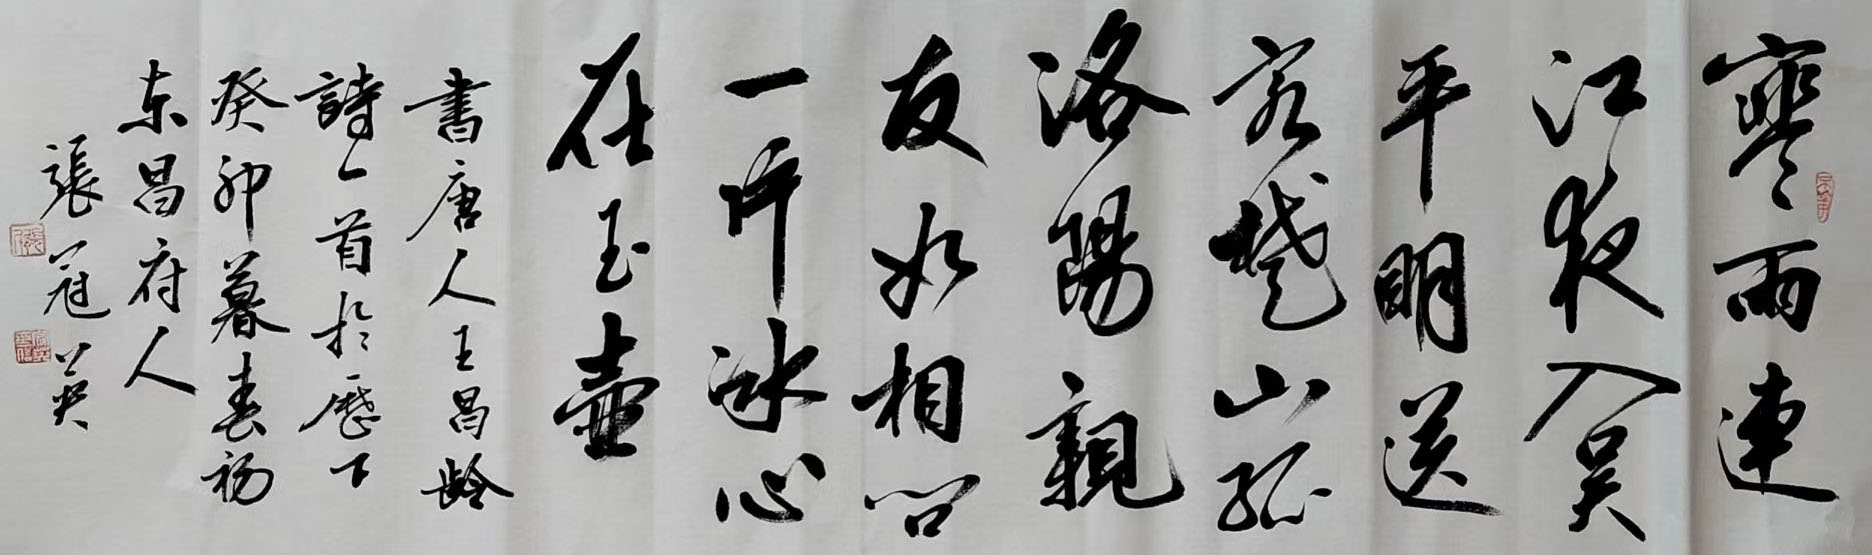 寒雨連
江夜入吴
平明送
客楚山孤
洛陽親
友如相問
一片冰心
在玉壺
書唐人王昌齡
詩一首於歷下
癸卯暮春初
东昌府人
張冠英